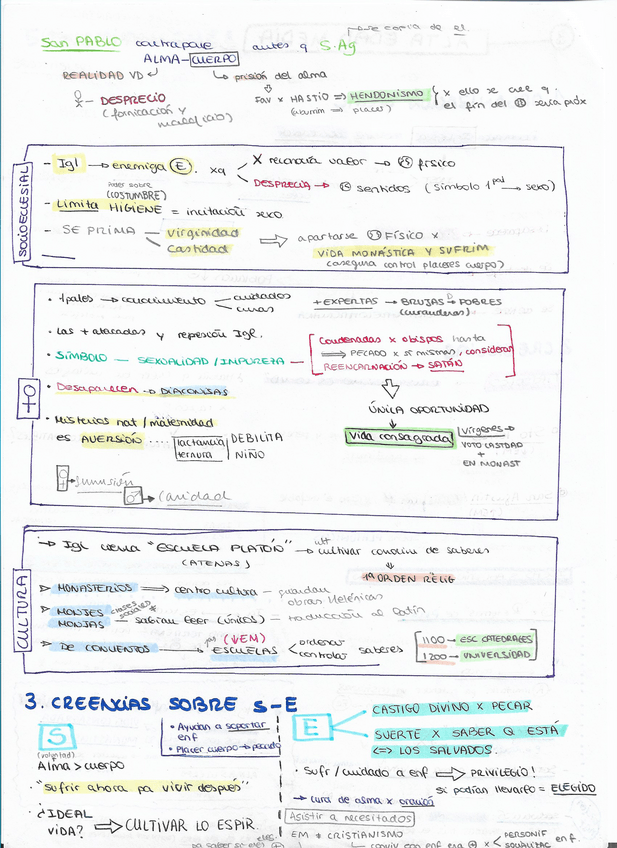 → se copia de el
San PABLO contrapone antes q S.Ag
ALMA-CUERPO
REALIDAD VD ↙ ↳ prisión del alma
DESPRECIO
(fornicación y
x HASTÍO ⇒ HENDONISMO { x ello se cree q.
el fin del
SOCIOECLESIAL
- Igl → enemiga E. xq
X reconocía valor → físico
DESPRECIA → sentidos (símbolo 1 → sexo)
(COSTUMBRE)
- Limita HIGIENE = incitación sexo
- SE PRIMA
Virginidad
Castidad
⇒ apartarse FÍSICO x
VIDA MONÁSTICA Y SUFRIM
(asegura control placeres cuerpo)
♀
• 1pales → conocimiento
cuidados
curas
+ EXPERTAS → BRUJAS → POBRES
(curanderas)
• Las + atacadas y represión Igl.
• SÍMBOLO — SEXUALIDAD/IMPUREZA —
Condenadas x obispos hasta
⇒ PECADO x sí mismas, consideras
REENCARNACIÓN → SATÁN
• Desaparecen → DIACONISAS
• Misterios nat/maternidad
es AVERSIÓN ....
lactancia
ternura
DEBILITA
NIÑO
ÚNICA OPORTUNIDAD
↓
Vida consagrada
Vírgenes →
VOTO CASTIDAD
+
EN MONAST
♀ → sumisión
♂ → caridad
CULTURA
→ Igl cierra "ESCUELA PLATÓN" → cultivar conocim de saberes
(ATENAS)
↓
1ª ORDEN RELIG
▷ MONASTERIOS ⇒ centro cultura — guardan
obras Helénicas
▷ MONJES
MONJAS
clases sociales *
— sabían leer (únicos) — traducción al Latín
▷ DE CONVENTOS → ESCUELAS
(↓EM)
ordenar
controlar
saberes
1100 → ESC CATEDRALES
1200 → UNIVERSIDAD
3. CREENCIAS SOBRE S-E
S
(voluntad)
Alma > cuerpo
• Ayudan a soportar
enf
• Placer cuerpo → pecado
• "sufrir ahora pa vivir después"
• ¿IDEAL
VIDA? ⇒ CULTIVAR LO ESPIR.
E
CASTIGO DIVINO X PECAR
SUERTE X SABER Q ESTÁ
⇔ LOS SALVADOS.
• Sufr/cuidado a enf ⇒ PRIVILEGIO!
si podían llevarlo = ELEGIDO
→ cura de alma x oración
Asistir a necesitados
EM ≠ CRISTIANISMO
PERSONIF
enf.